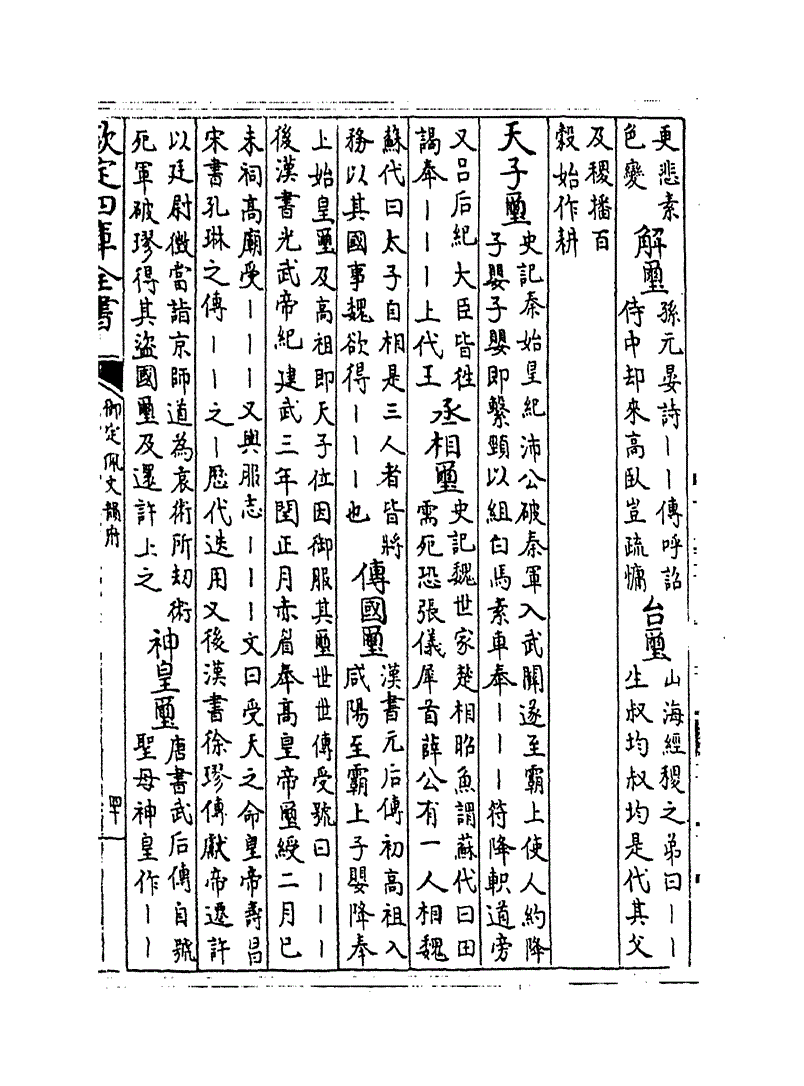 更悲素
色變
解璽
孫元晏詩||傳呼詔
侍中却來高臥豈疏慵
台璽
山海經稷之弟曰||
生叔均叔均是代其父
及稷播百
穀始作耕
天子璽
史記秦始皇紀沛公破秦軍入武關遂至霸上使人約降
子嬰子嬰即繫頸以組白馬素車奉|||符降軹道旁
又呂后紀大臣皆往
謁奉|||上代王
丞相璽
史記魏世家楚相昭魚謂蘇代曰田
需死恐張儀犀首薛公有一人相魏
蘇代曰太子自相是三人者皆將
務以其國事魏欲得|||也
傳國璽
漢書元后傳初高祖入
咸陽至霸上子嬰降奉
上始皇璽及高祖即天子位因御服其璽世世傳受號曰|||
後漢書光武帝紀建武三年閏正月赤眉奉高皇帝璽綬二月巳
未祠高廟受|||又輿服志|||文曰受天之命皇帝壽昌
宋書孔琳之傳||之|歷代迭用又後漢書徐璆傳獻帝遷許
以廷尉徵當詣京師道為袁術所劫術
死軍破璆得其盜國璽及還許上之
神皇璽
唐書武后傳自號
聖母神皇作||
欽定四庫全書
御定佩文韻府
四十